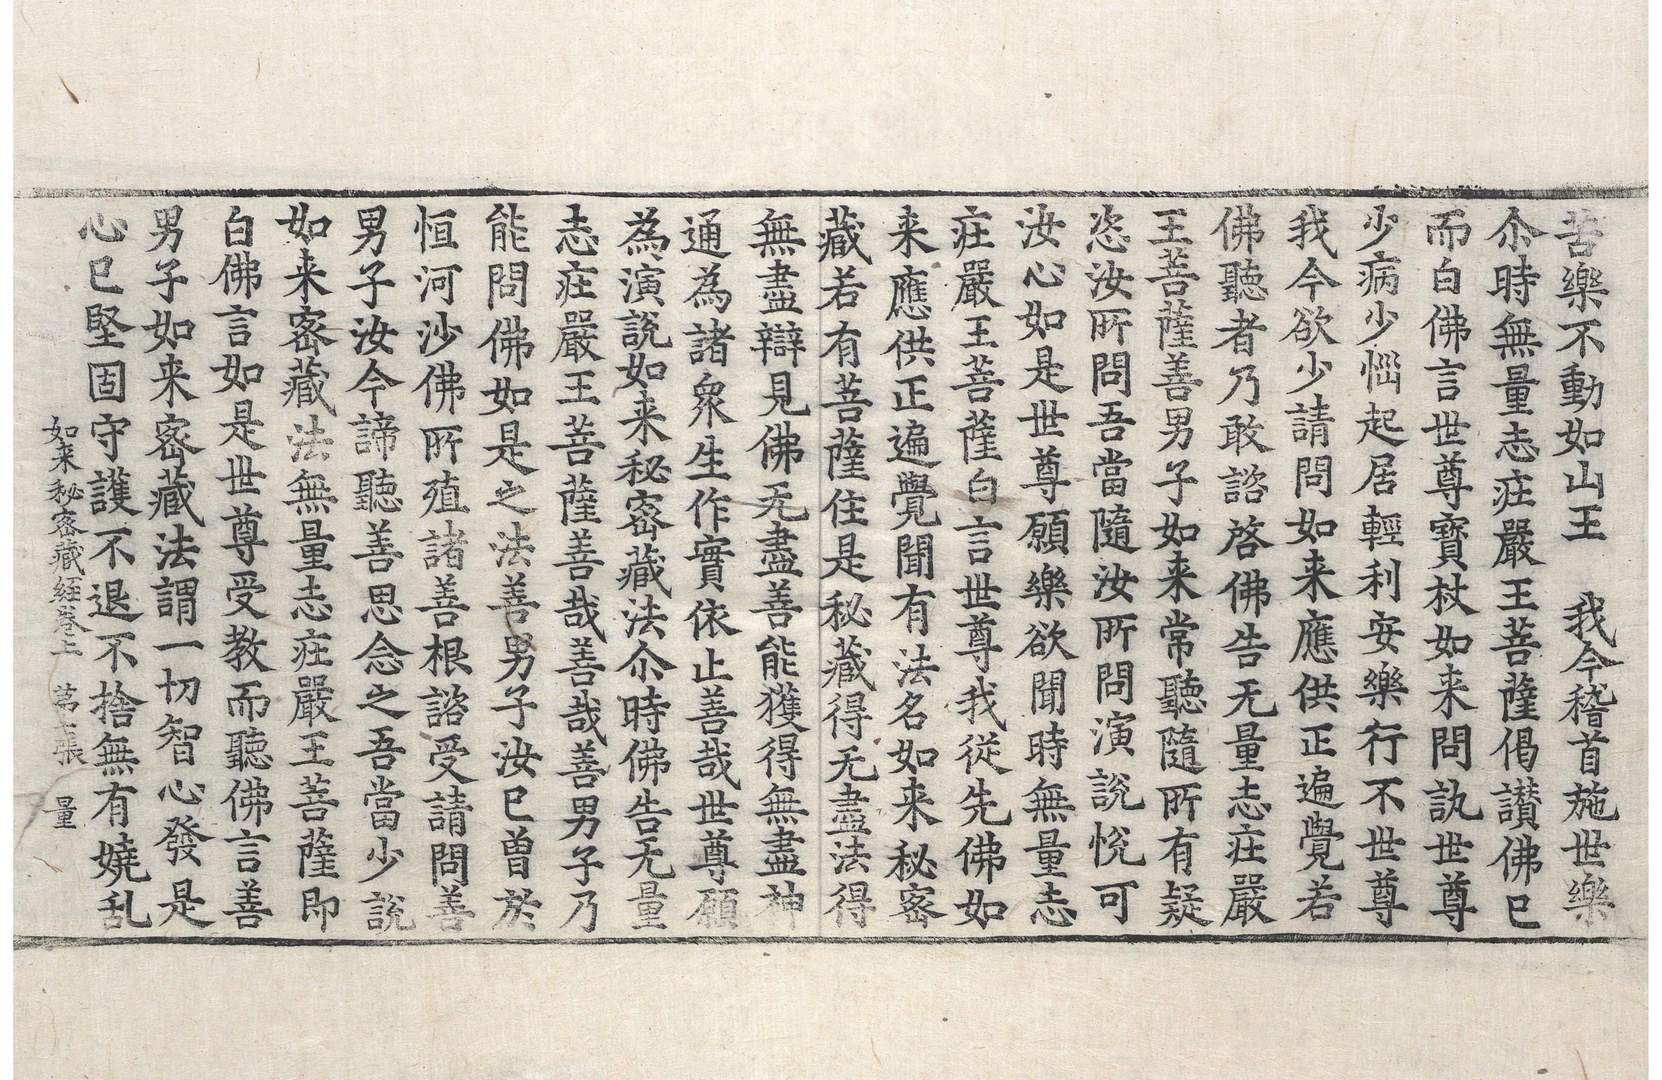 苦樂不動如山王　我今稽首施世樂
尒時無量志庄嚴王菩薩偈讃佛已
而白佛言世尊寶杖如来問訊世尊
少病少惱起居輕利安樂行不世尊
我今欲少請問如来應供正遍覺若
佛聽者乃敢諮啓佛告无量志庄嚴
王菩薩善男子如来常聽隨所有疑
恣汝所問吾當隨汝所問演説悅可
汝心如是世尊願樂欲聞時無量志
庄嚴王菩薩白言世尊我従先佛如
来應供正遍覺聞有法名如来秘密
藏若有菩薩住是秘藏得无盡法得
無盡辯見佛无盡善能獲得無盡神
通為諸衆生作實依止善哉世尊願
為演説如来秘密藏法尒時佛告无量
志庄嚴王菩薩善哉善哉善男子乃
能問佛如是之法善男子汝已曽於
恒河沙佛所殖諸善根諮受請問善
男子汝今諦聽善思念之吾當少説
如来密藏法無量志庄嚴王菩薩即
白佛言如是世尊受教而聽佛言善
男子如来密藏法謂一切智心發是
心已堅固守護不退不捨無有嬈乱
如来秘密藏経巻上　第二張　量